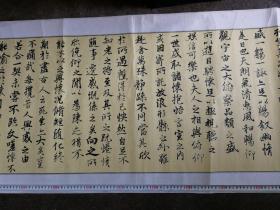 觴一詠亦足以暢敘幽情
是日也天朗氣清惠風和暢仰
觀宇宙之大俯察品類之盛
所以遊目騁懷足以極視聽之
娛信可樂也夫人之相與俯仰
一世或取諸懷抱悟言一室之內
或因寄所託放浪形骸之外雖
趣舍萬殊靜躁不同當其欣
於所遇暫得於己快然自足不
知老之將至及其所之既惓情
隨事遷感慨係之矣向之所
欣俛仰之間以為陳迹猶不
能不以之興懷況脩短隨化終
期於盡古人云死生亦大矣豈
不痛哉每攬昔人興感之由
若合一契未嘗不臨文嗟悼不
能喻之